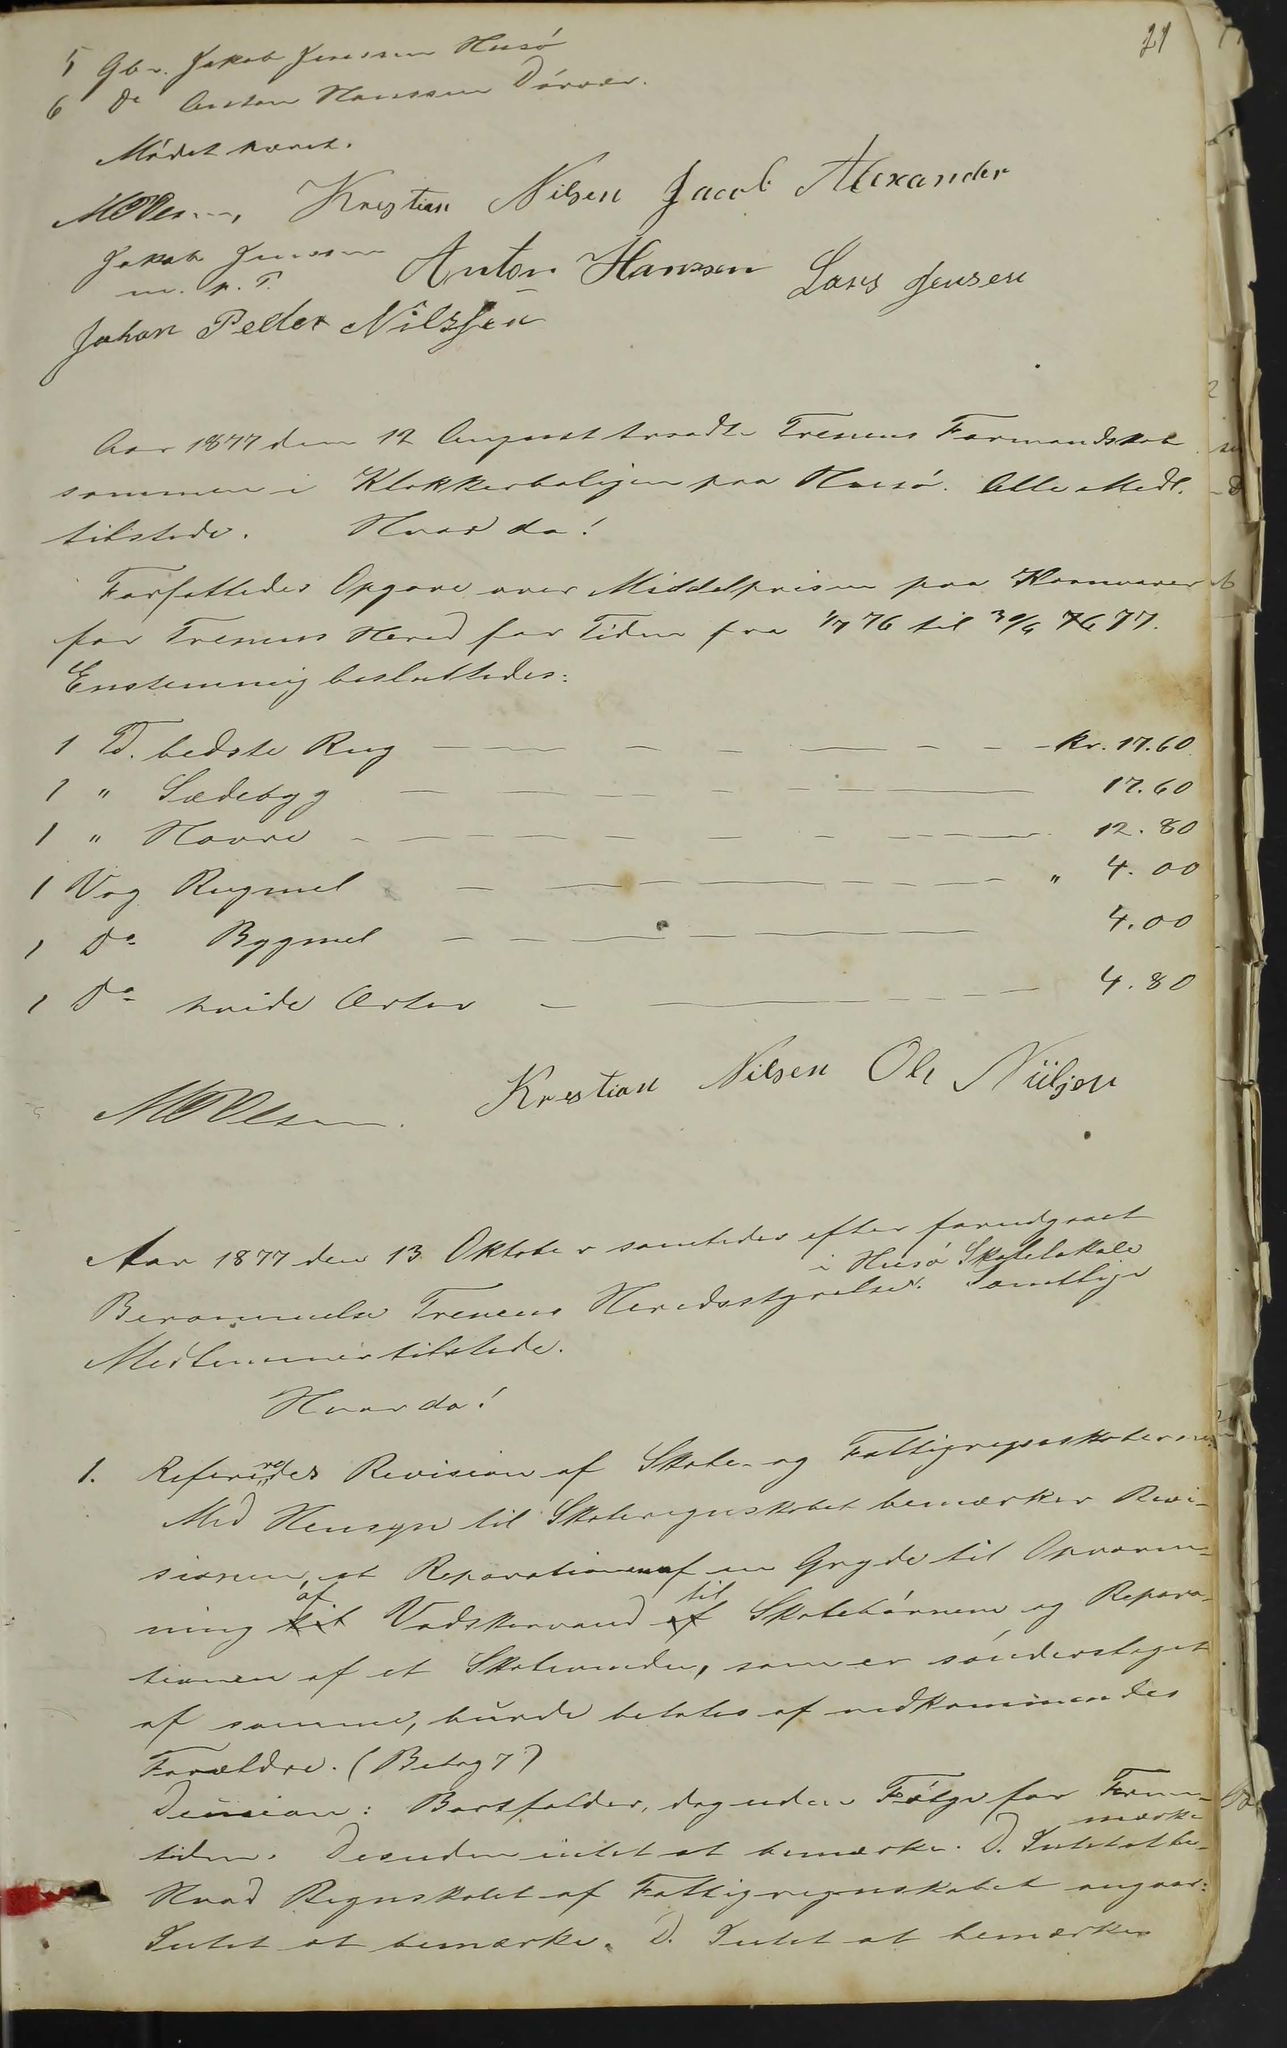 21
5 Gbr. Jakob Jenssen Husö
6 Do Anton Hanssen Dörvær.
Mödet hævet.
MOOlsen, Kristian Nilsen Jacob Alexander
Jakob Jenssen Anton Hansen Lars Jensen
m. p. P.
Johan Peder Nilssen
Aar 1877 den 12 August traadte Trenens Formandskab
sammen i Klokkerboligen paa Husö. Alle Medl.
tilstede. Hvor da!
Forfattedes Opgave over Middelprisen paa Kornvarer
for Trenens Hered for Tiden fra 1/7 76 til 30/6 76 77.
Enstemmig besluttedes:
1 Td. bedste Rug kr. 17.60
1 " Sædebyg 17.60
1 " Havre 12.80
1 Vog Rugmel " 4.00
1 Do Bygmel 4.00
1 Do hvide Erter 4.80
MOOlsen. Krestian Nilsen Ole Niilsen
Aar 1877 den 13 Oktober samledes efter forudgaaet
i Husö Skolelokale
Berammelse Trenens Heredsstyrelse. Samtlige
Medlemmer tilstede.
Hvor da!
1. Refereredes Revision af Skole- og Fattigregnskaberne.
Med Hensyn til Skoleregnskabet bemærker Revi-
sionen, at Reparationen af en Gryde til Opvarm-
af til
ning til Vadskervand af Skolebörnene og Repara-
tionen af et Skolevindu, som er sönderslaget
af samme, burde betales af vedkommendes
Forældre. (Bilag 7)
Decision: Bortfalder, dog uden Fölge for Frem-
mærke
tiden. Desuden intet at bemærke. D. Intet at be-
Hvad Regnskabet af Fattigregnskabet angaar:
Intet at bemærke. D. Intet at bemærke